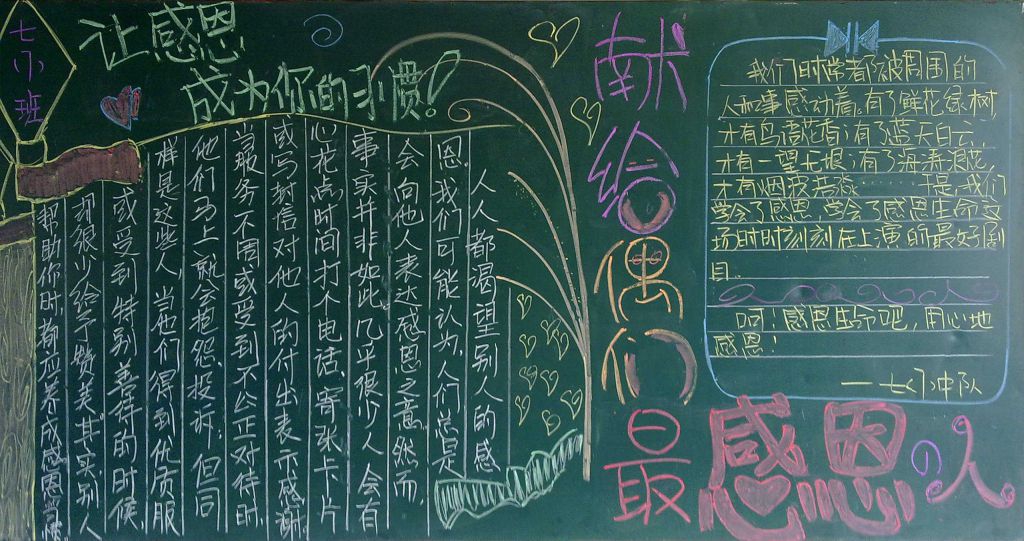 七(7)班
让感恩
成为你的习惯!
人人都渴望别人的感
恩,我们可能认为,人们总是
会向他人表达感恩之意。然而,
事实并非如此。几乎很少人会有
心花点时间打个电话、寄张卡片
或写封信对他人的付出表示感谢
当服务不周或受到不公正对待时,
他们马上就会抱怨、投诉;但同
样是这些人,当他们得到优质服
或受到特别善待的时候,
却很少给予赞美。其实,别人
帮助你时,都应养成感恩当惯
献给偶们
最感恩の人
我们时常都被周围的
人和事感动着。有了鲜花绿树,
才有鸟语花香;有了蓝天白云,
才有一望无垠;有了海涛浪花,
才有烟波浩淼……于是,我们
学会了感恩,学会了感恩生命这
场时时刻刻在上演的最好剧
目。
呵!感恩生命吧,用心地
感恩!
——七(7)中队